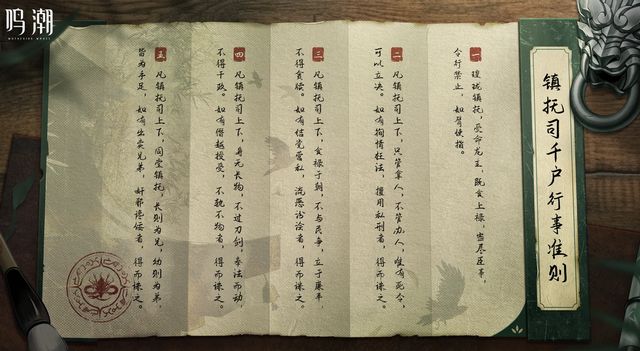 鸣潮
WUTHERING WAVES
镇抚司千户行事准则
一 瑝珑镇抚，受命龙主，既食上禄，当尽臣事，
令行禁止，如臂使指。
二 凡镇抚司上下，只管拿人，不管办人，唯有死令，
可以立决。如有徇情枉法，擅用私刑者，得而诛之。
三 凡镇抚司上下，食禄于朝，不与民争，立于廉平，
不得贪赎。如有结党营私，流恶谄谀者，得而诛之。
四 凡镇抚司上下，身无长物，不过刀剑，奉法而动，
不得干政。如有僭越授受，不轨不物者，得而诛之。
五 凡镇抚司上下，同堂镇抚，长则为兄，幼则为弟，
皆为手足，如有出卖兄弟，奸邪谗佞者，得而诛之。